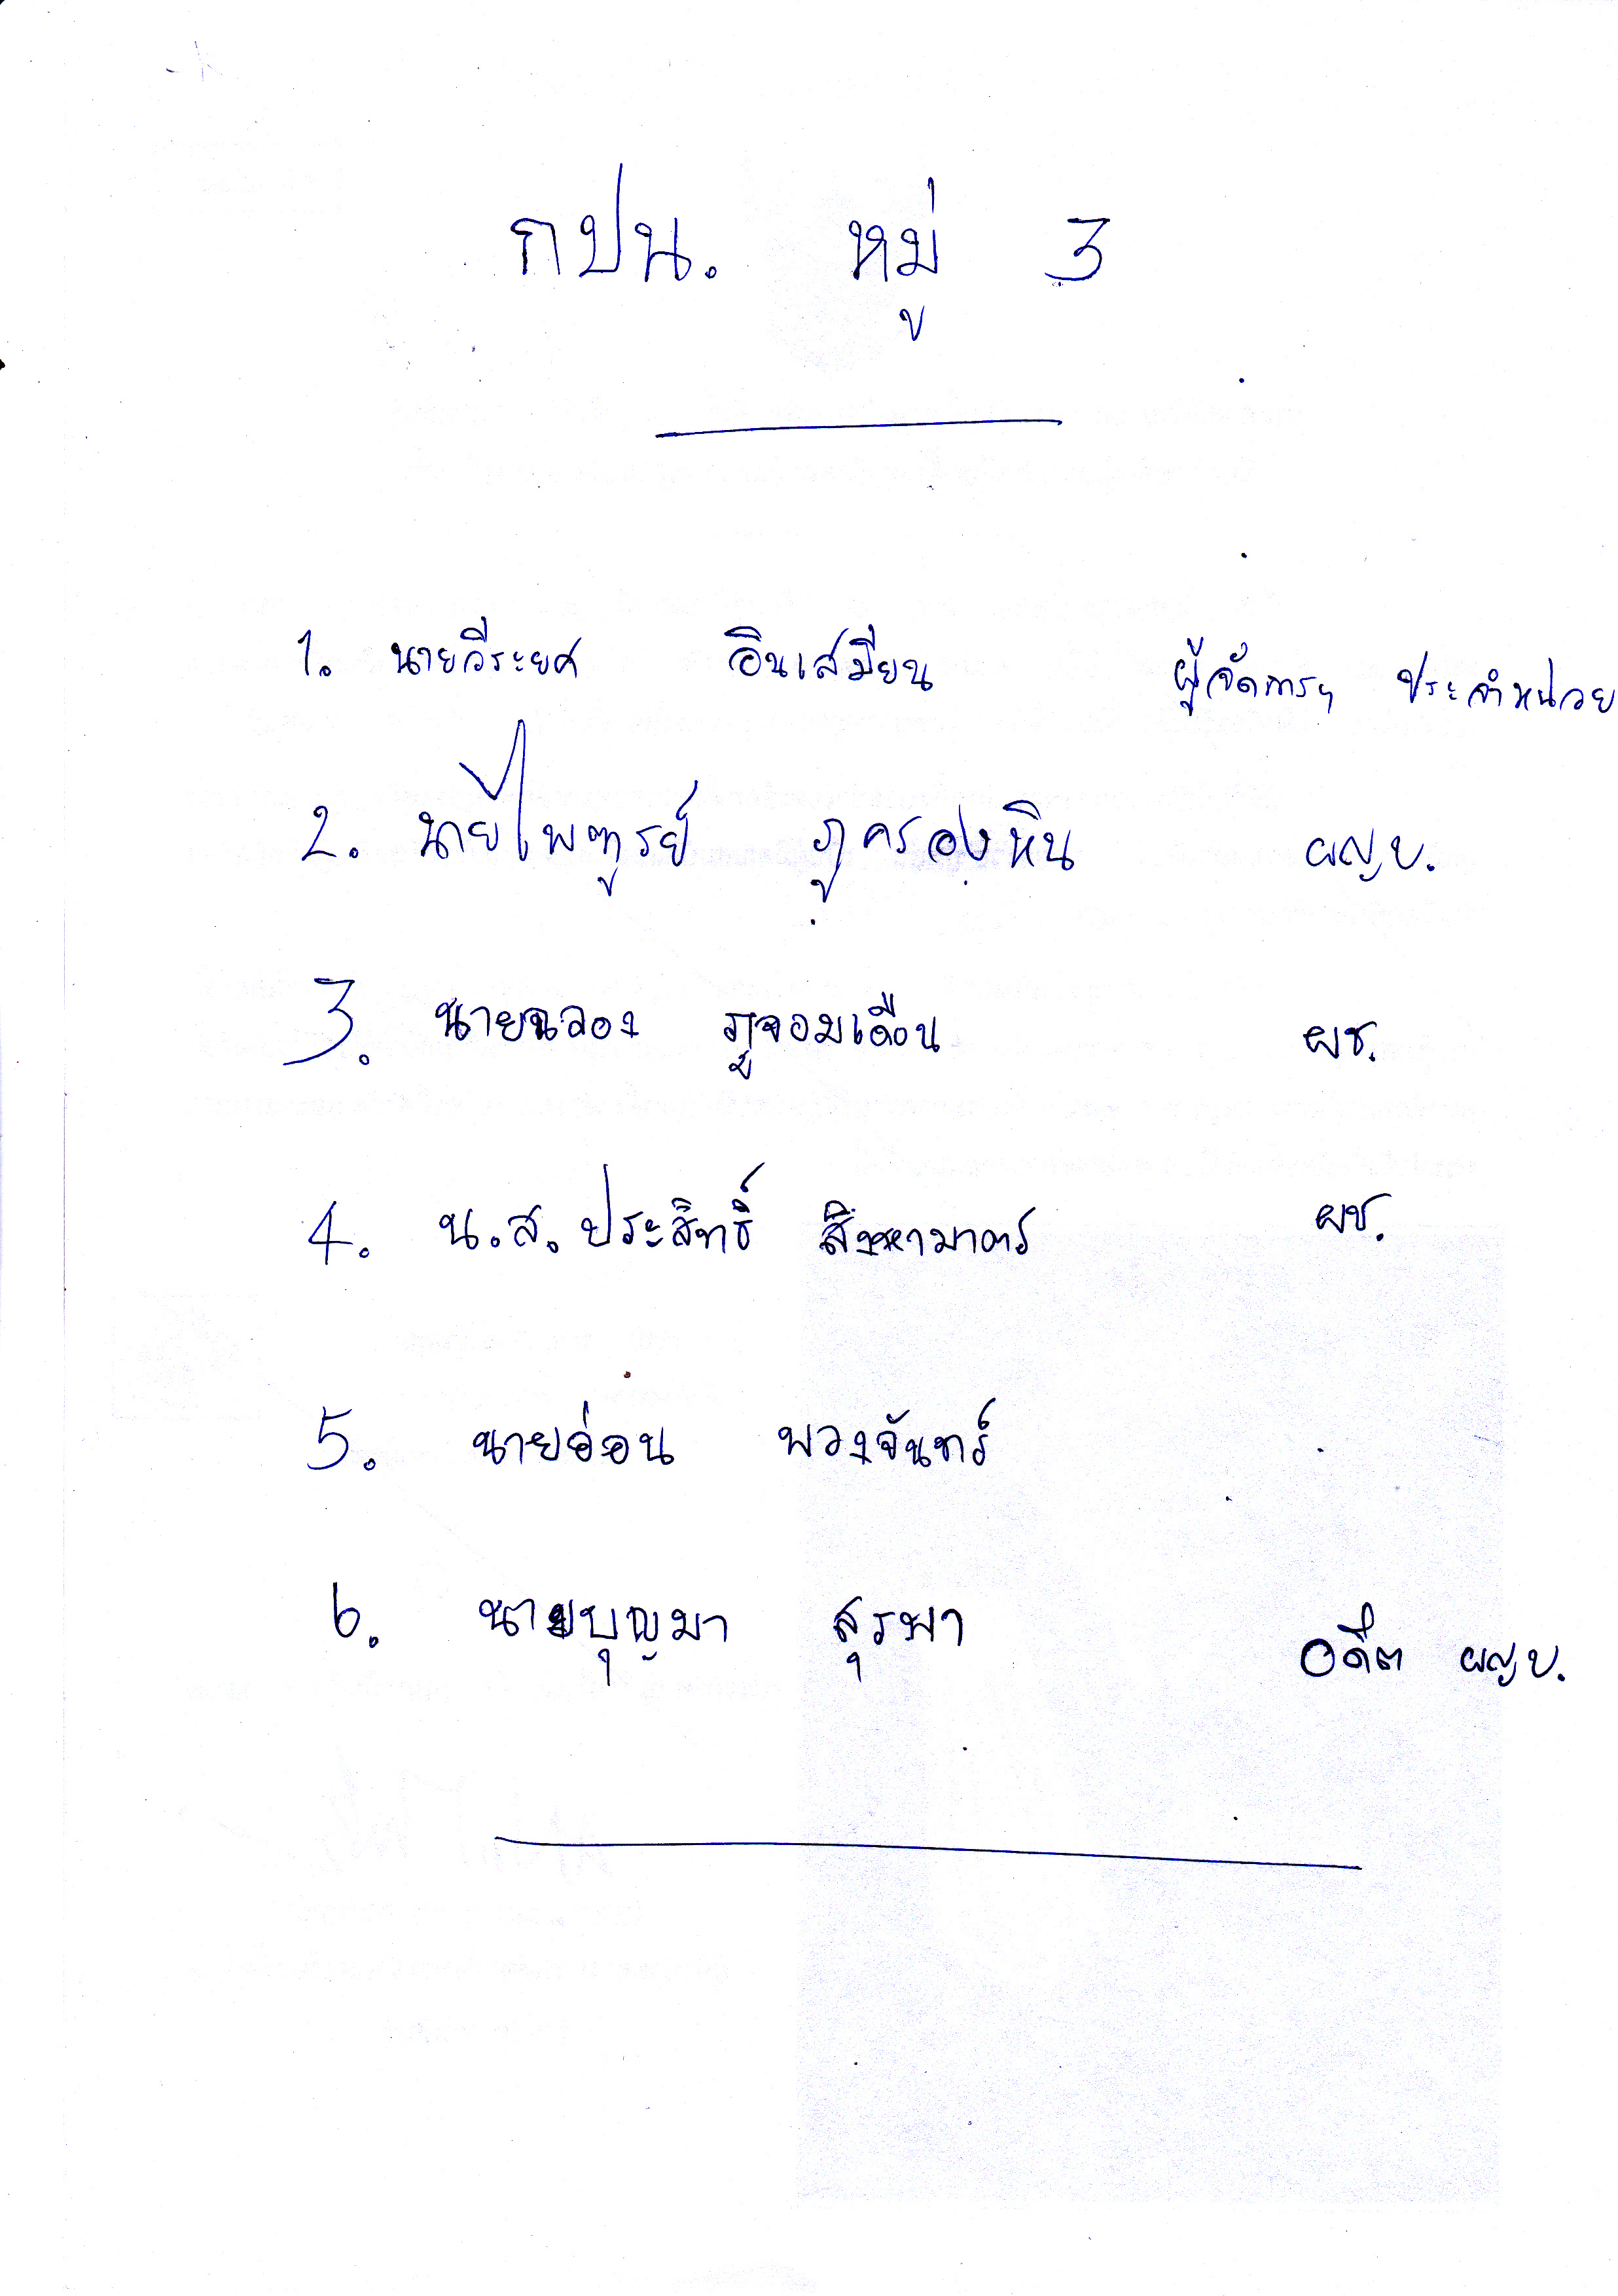 กปน. หมู่ 3
1. นายวีระยศ อินเสมียน ผู้จัดการฯ ประจำหน่วย
2. นายไพฑูรย์ ภูครองหิน ผญบ.
3. นายฉลอง ภูจอมเดือน ผช.
4. น.ส. ประสิทธิ์ สิงหามาตร ผช.
5. นายอ่อน พวงจันทร์
6. นายบุญมา สุรพา อดีต ผญบ.